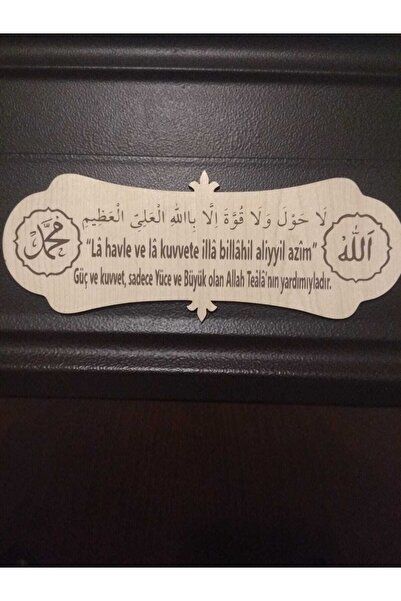 لَا حَوْلَ وَلَا قُوَّةَ اِلَّا بِاللّٰهِ الْعَلِيِّ الْعَظِيمِ
اَللّٰهُ
مُحَمَّد
“Lâ havle ve lâ kuvvete illâ billâhil aliyyil azîm”
Güç ve kuvvet, sadece Yüce ve Büyük olan Allah Teâlâ'nın yardımıyladır.